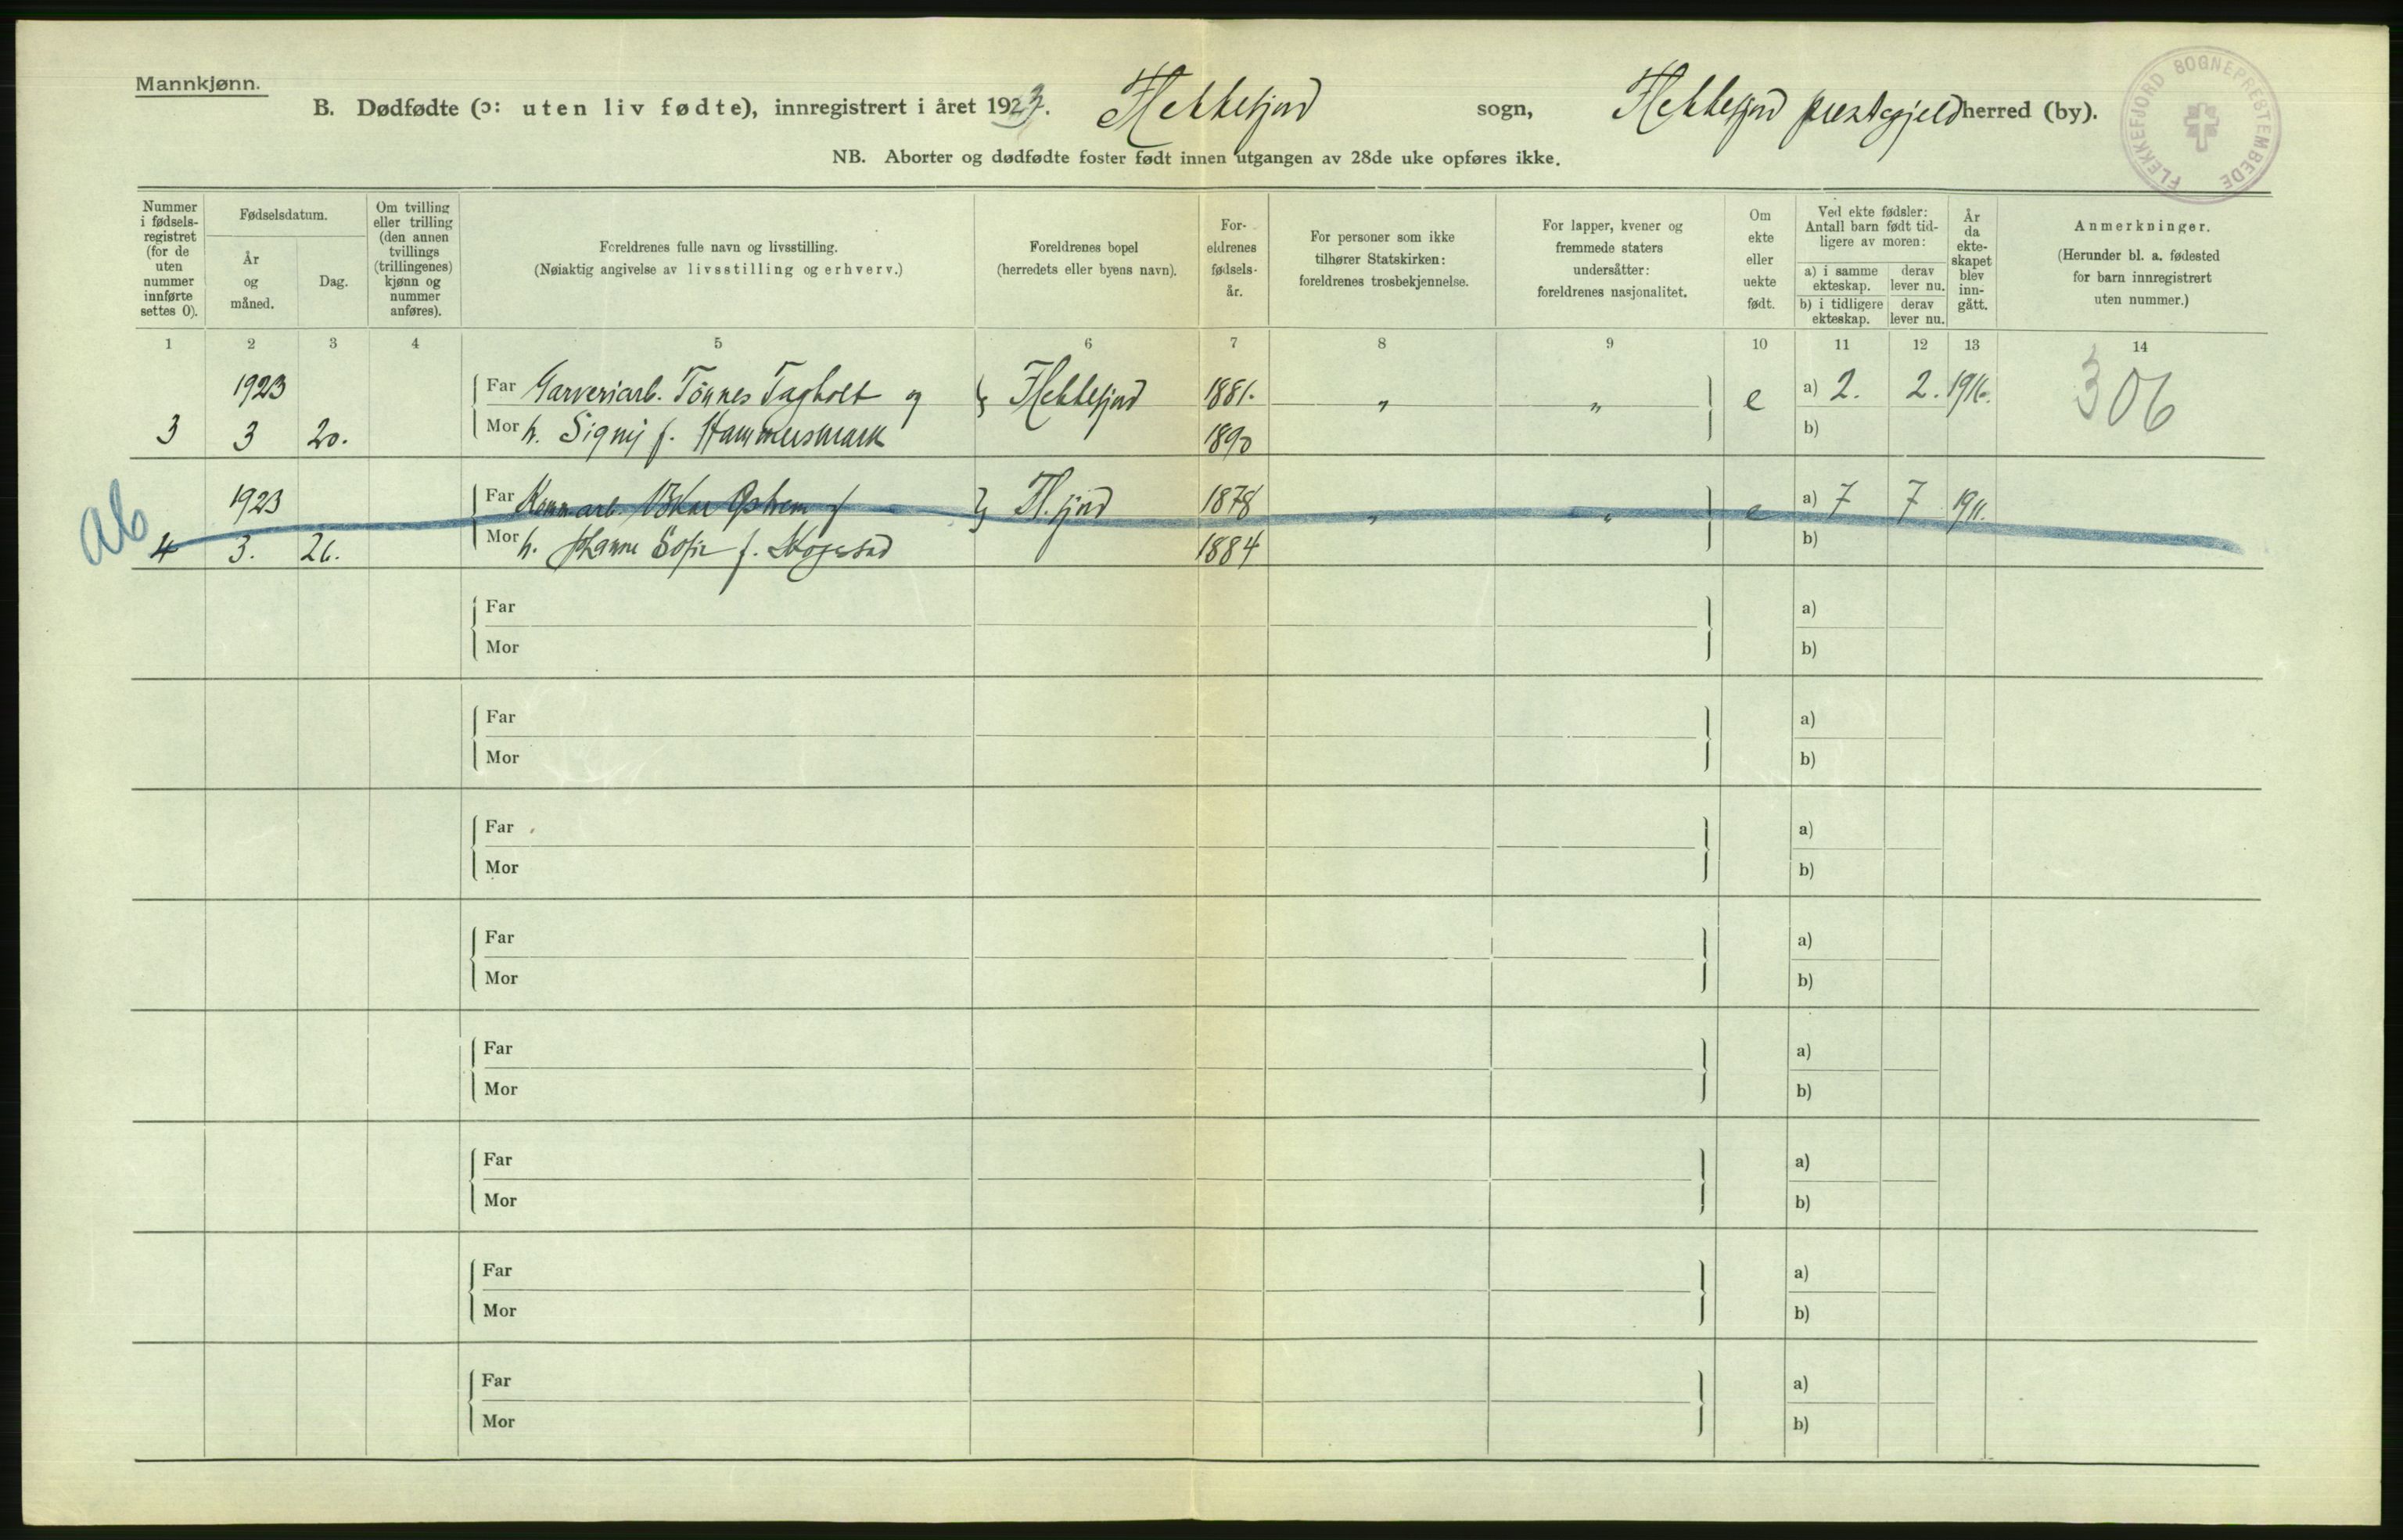 Mannkjønn.
B. Dødfødte (ɔ: uten liv fødte), innregistrert i året 1923. Flekkefjord sogn, Flekkefjord prestegjeld herred (by).
FLEKKEFJORD SOGNEPRESTEMBEDE
NB. Aborter og dødfødte foster født innen utgangen av 28de uke opføres ikke.
Nummer i fødsels-registret (for de uten nummer innførte settes 0).
Fødselsdatum.
År og måned.
Dag.
Om tvilling eller trilling (den annen tvillings (trillingenes) kjønn og nummer anføres).
Foreldrenes fulle navn og livsstilling.
(Nøiaktig angivelse av livsstilling og erhverv.)
Foreldrenes bopel
(herredets eller byens navn).
For-eldrenes fødsels-år.
For personer som ikke tilhører Statskirken: foreldrenes trosbekjennelse.
For lapper, kvener og fremmede staters undersåtter: foreldrenes nasjonalitet.
Om ekte eller uekte født.
Ved ekte fødsler: Antall barn født tid-ligere av moren:
a) i samme ekteskap. derav lever nu.
b) i tidligere ekteskap. derav lever nu.
År da ekte-skapet blev inn-gått.
Anmerkninger.
(Herunder bl. a. fødested for barn innregistrert uten nummer.)
1 2 3 4 5 6 7 8 9 10 11 12 13 14
1923 Far Garveriarb. Tönnes Tagholt og } Flekkefjord 1881. " " e a) 2. 2. 1916. 306
3 3 20. Mor h. Signy f. Hammersmark 1890 b)
ab 1923 Far } Fl. fjord 1878 " " e a) 7 7 1911.
4 3. 26. Mor h. Sofie f. 1884 b)
Far a)
Mor b)
Far a)
Mor b)
Far a)
Mor b)
Far a)
Mor b)
Far a)
Mor b)
Far a)
Mor b)
Far a)
Mor b)
Far a)
Mor b)